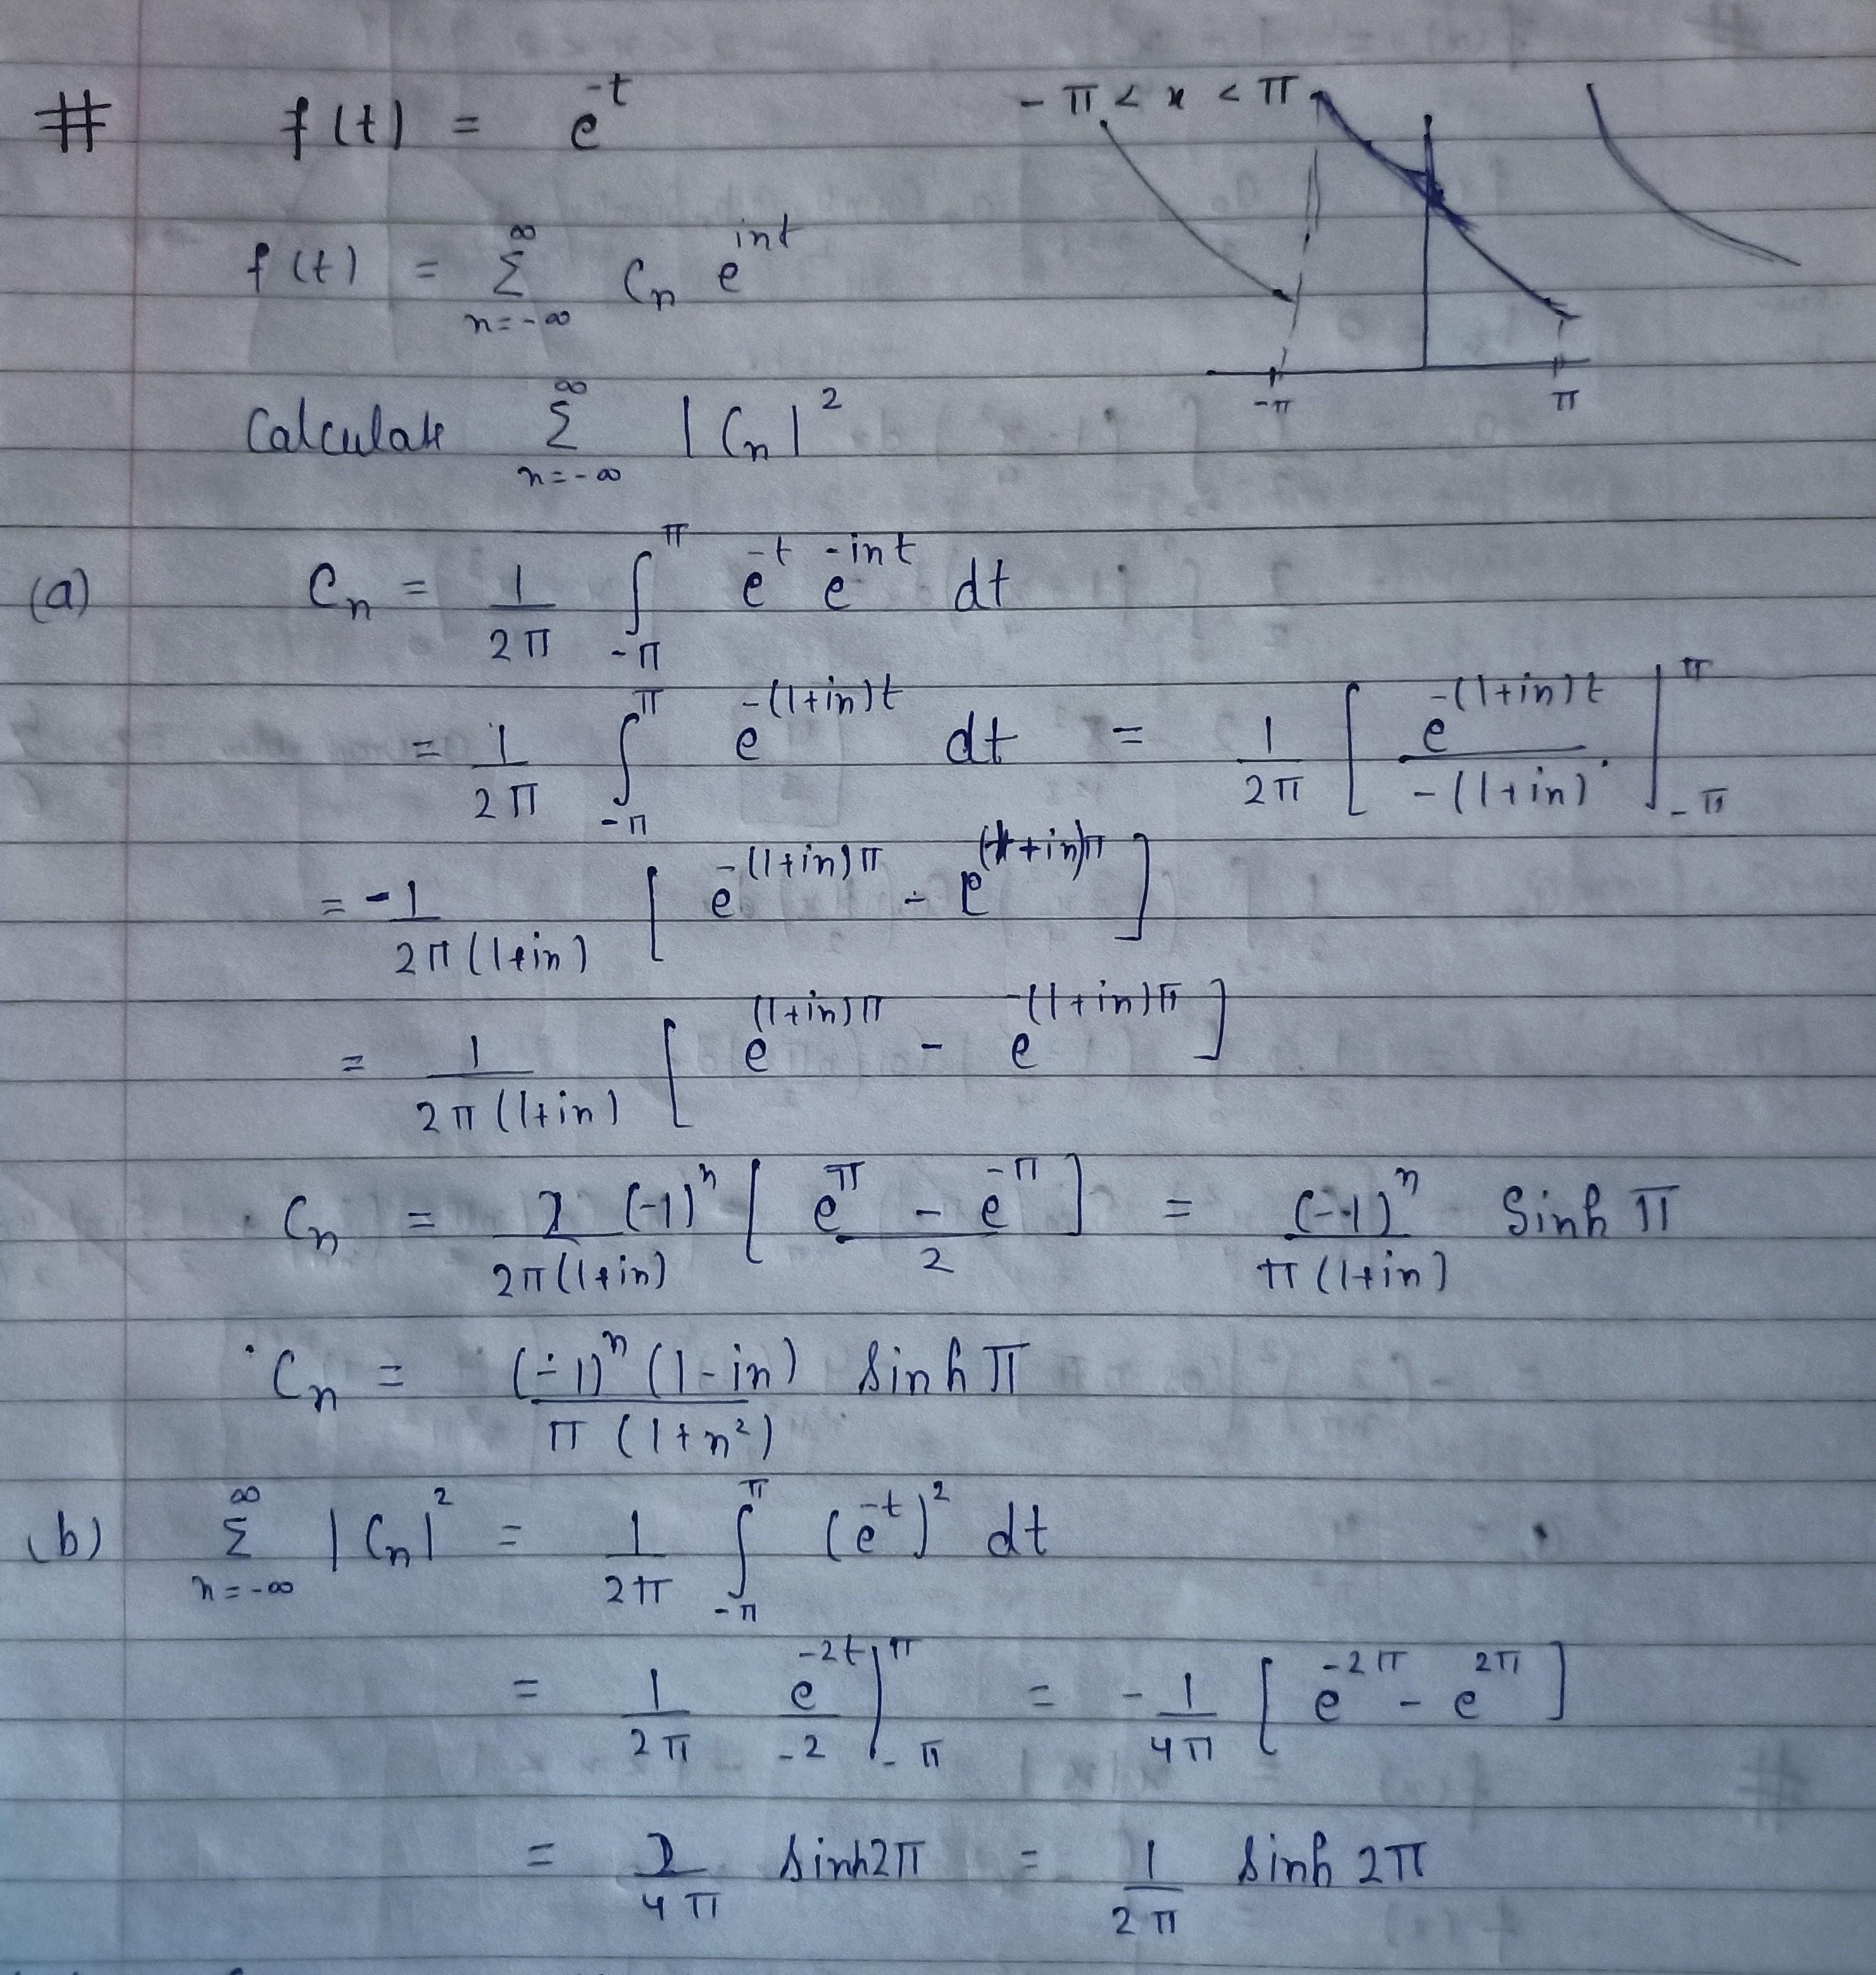 # f(t) = e^{-t} -π < x < π
f(t) = Σ_{n=-∞}^{∞} C_n e^{int}
-π π
Calculate Σ_{n=-∞}^{∞} |C_n|^2
(a) C_n = 1/2π ∫_{-π}^{π} e^{-t} e^{-int} dt
= 1/2π ∫_{-π}^{π} e^{-(1+in)t} dt = 1/2π [ e^{-(1+in)t} / -(1+in) ]_{-π}^{π}
= -1/2π(1+in) [ e^{-(1+in)π} - e^{(1+in)π} ]
= 1/2π(1+in) [ e^{(1+in)π} - e^{-(1+in)π} ]
C_n = 2 (-1)^n / 2π(1+in) [ e^{π} - e^{-π} / 2 ] = (-1)^n / π(1+in) Sinh π
C_n = (-1)^n (1-in) / π(1+n^2) sinh π
(b) Σ_{n=-∞}^{∞} |C_n|^2 = 1/2π ∫_{-π}^{π} (e^{-t})^2 dt
= 1/2π e^{-2t}/-2 |_{-π}^{π} = -1/4π [ e^{-2π} - e^{2π} ]
= 2/4π sinh2π = 1/2π sinh 2π